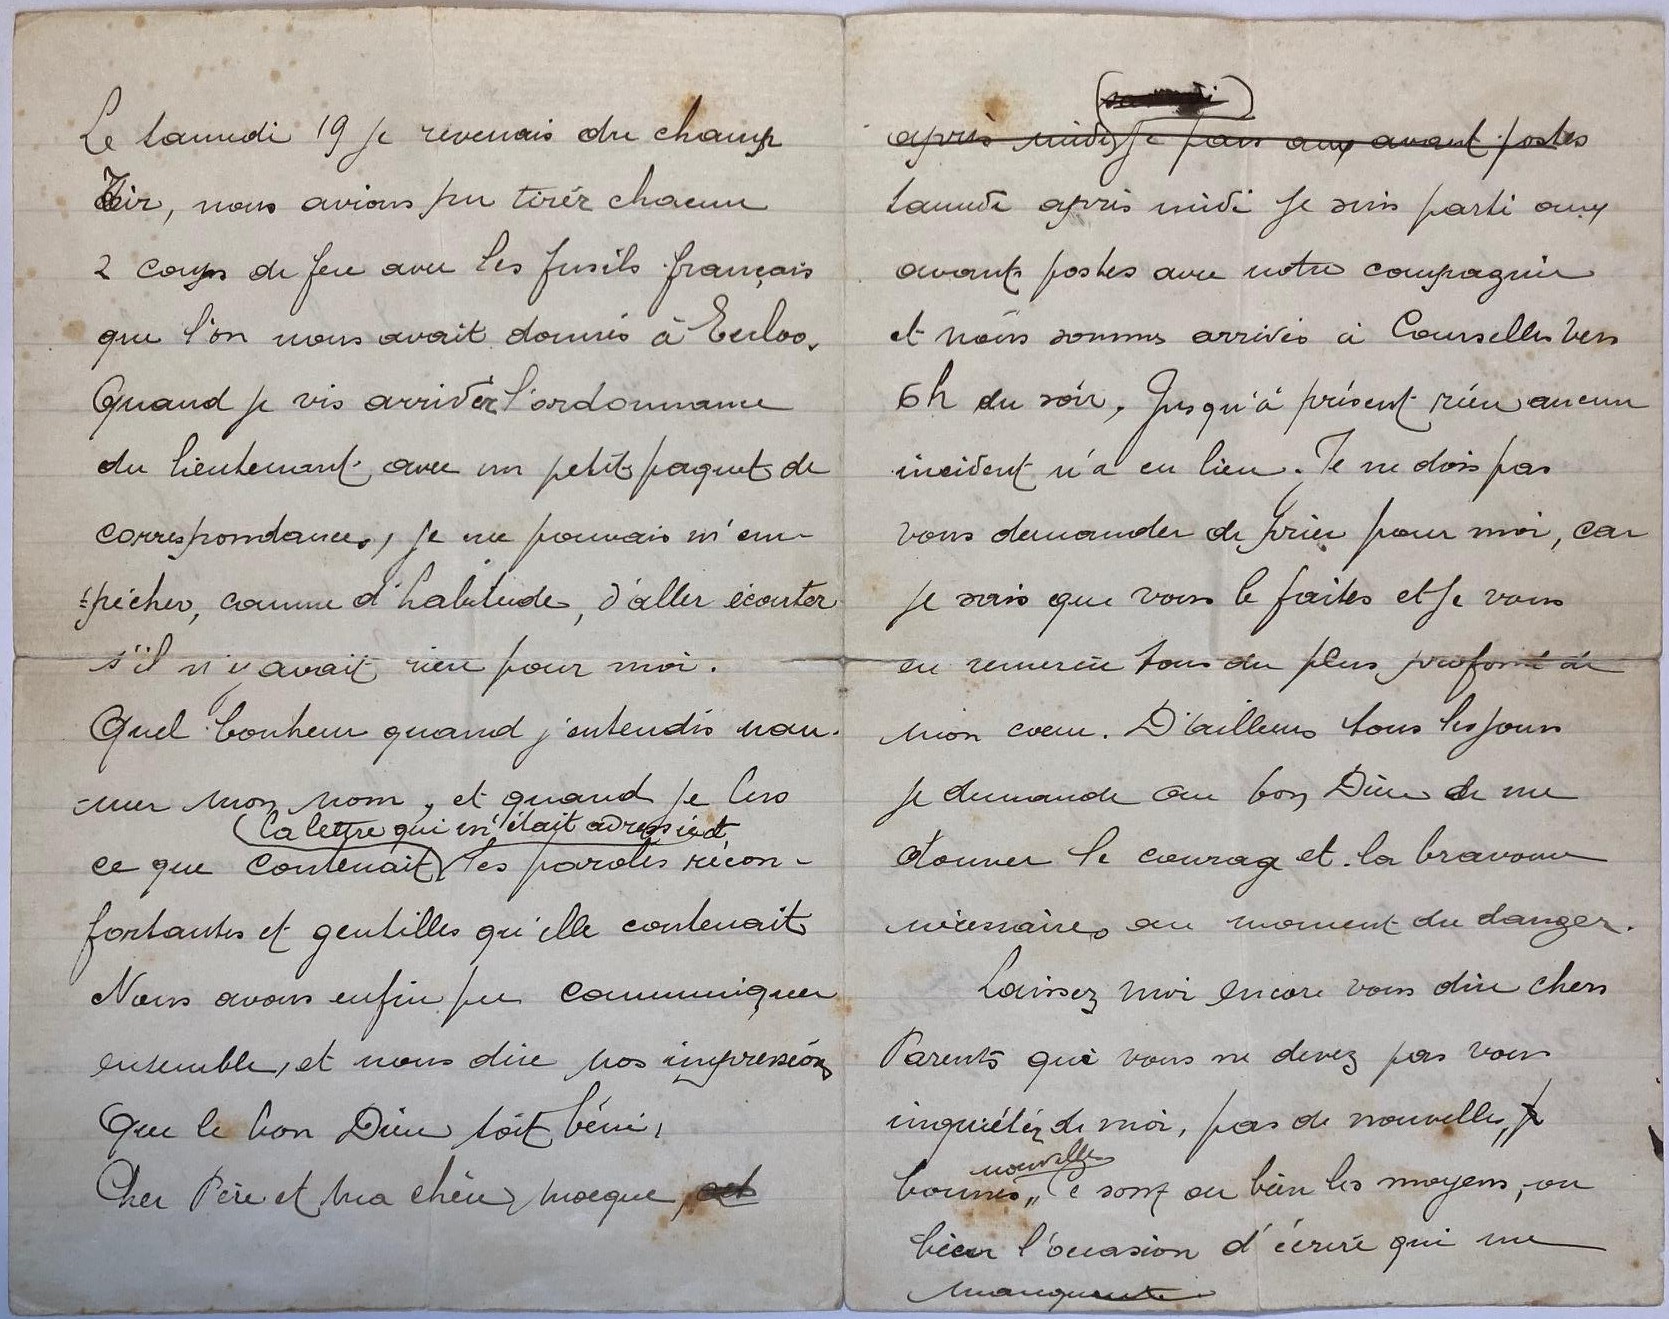 Le samedi 19 je revenais du champ
Tir, nous avions pu tirér chacun
2 coups de feu avec les fusils français
que l'on nous avait donnés à Eecloo.
Quand je vis arrivér l'ordonnance
du lieutenant avec un petit paquet de
correspondances, je ne pouvais m'em-
-pécher, comme d'habitude, d'aller écouter
s'il n'y avait rien pour moi.
Quel bonheur quand j'entendis nom-
-mer mon nom, et quand je lus
la lettre qui m'était adressée et
ce que contenait les paroles récon-
fortantes et gentilles qu'elle contenait
Nous avons enfin pu communiquer
ensemble, et nous dire nos impressions
Que le bon Dieu soit béni,
Cher Père et ma chère moeque,
après midi je pars aux avant postes
samedi après midi je suis parti aux
avants postes avec notre compagnie
et nous sommes arrivés à Courselles vers
6h du soir. Jusqu'à présent rien aucun
incident n'a eu lieu. Je ne dois pas
vous demander de prier pour moi, car
je sais que vous le faites et je vous
en remercie tous du plus profond de
mon coeur. D'ailleurs tous les jours
je demande au bon Dieu de me
donner le courage et la bravoure
nécessaires au moment du danger.
Laissez moi encore vous dire chers
Parents que vous ne devez pas vous
inquiétéz de moi, pas de nouvelles,
nouvelles
bonnes,, ce sont ou bien les moyens, ou
bien l'occasion d'écrire qui me
manquent.